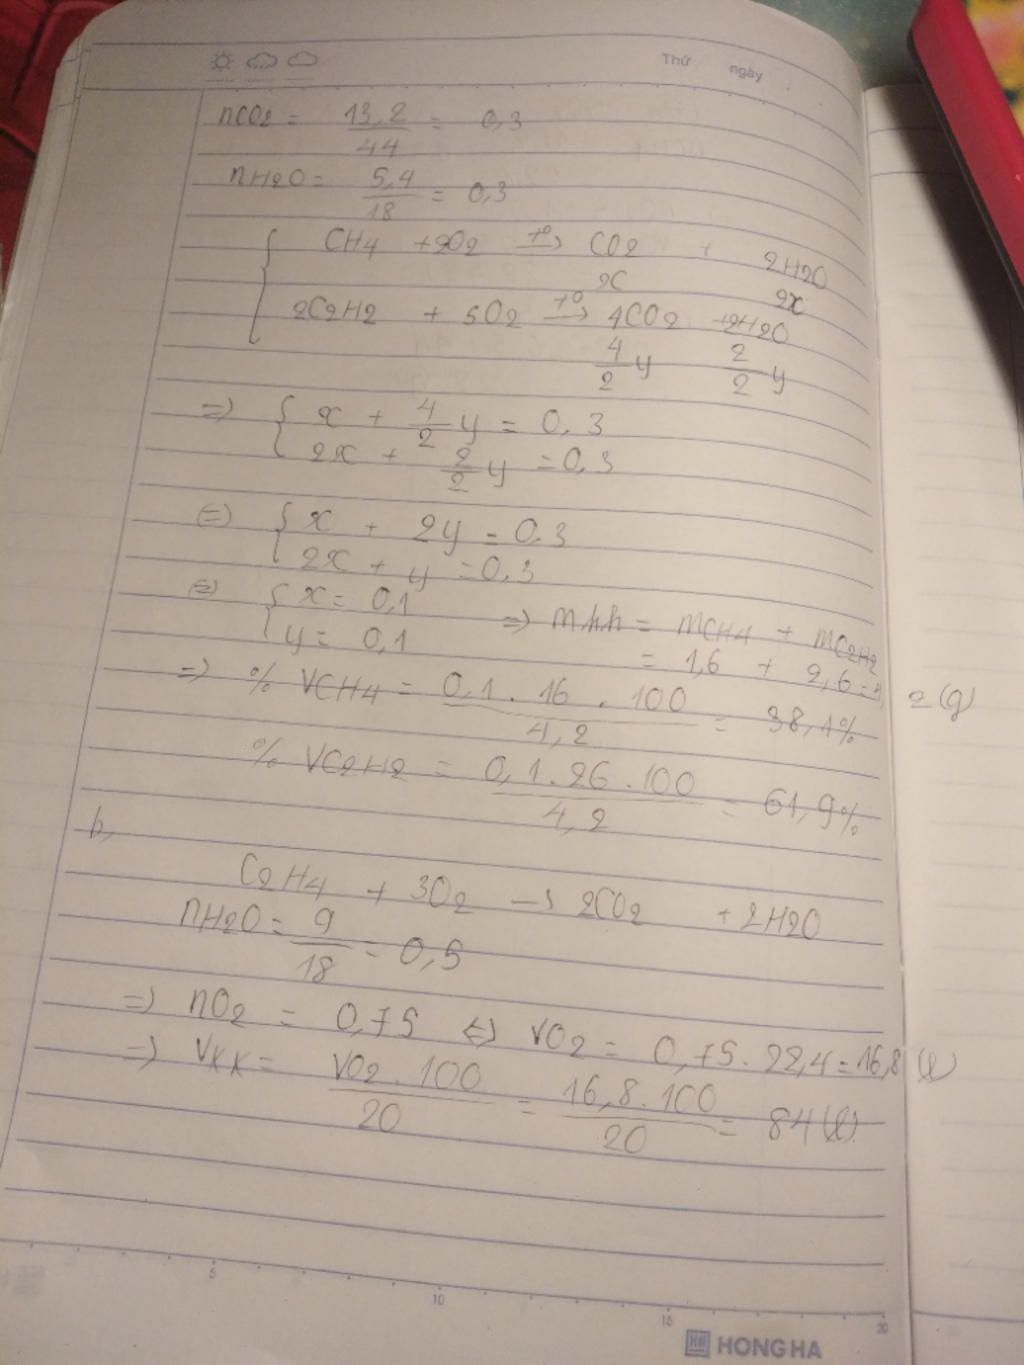 Thứ ngày
nCO2 = 13,2/44 = 0,3
nH2O = 5,4/18 = 0,3
{ CH4 + 2O2 t°→ CO2 + 2H2O
x 2x
2C2H2 + 5O2 t°→ 4CO2 + 2H2O
4/2 y 2/2 y
=> { x + 4/2 y = 0,3
2x + 2/2 y = 0,3
<=> { x + 2y = 0,3
2x + y = 0,3
<=> { x = 0,1 => mhh = mCH4 + mC2H2
y = 0,1 = 1,6 + 2,6 = 3,2(g)
=> % VCH4 = 0,1.16.100/4,2 = 38,1%
% VC2H2 = 0,1.26.100/4,2 = 61,9%
b,
C2H4 + 3O2 → 2CO2 + 2H2O
nH2O = 9/18 = 0,5
=> nO2 = 0,75 <=> VO2 = 0,75.22,4 = 16,8 (l)
=> VKK = VO2.100/20 = 16,8.100/20 = 84(l)
5 10 15 20
HH HONG HA